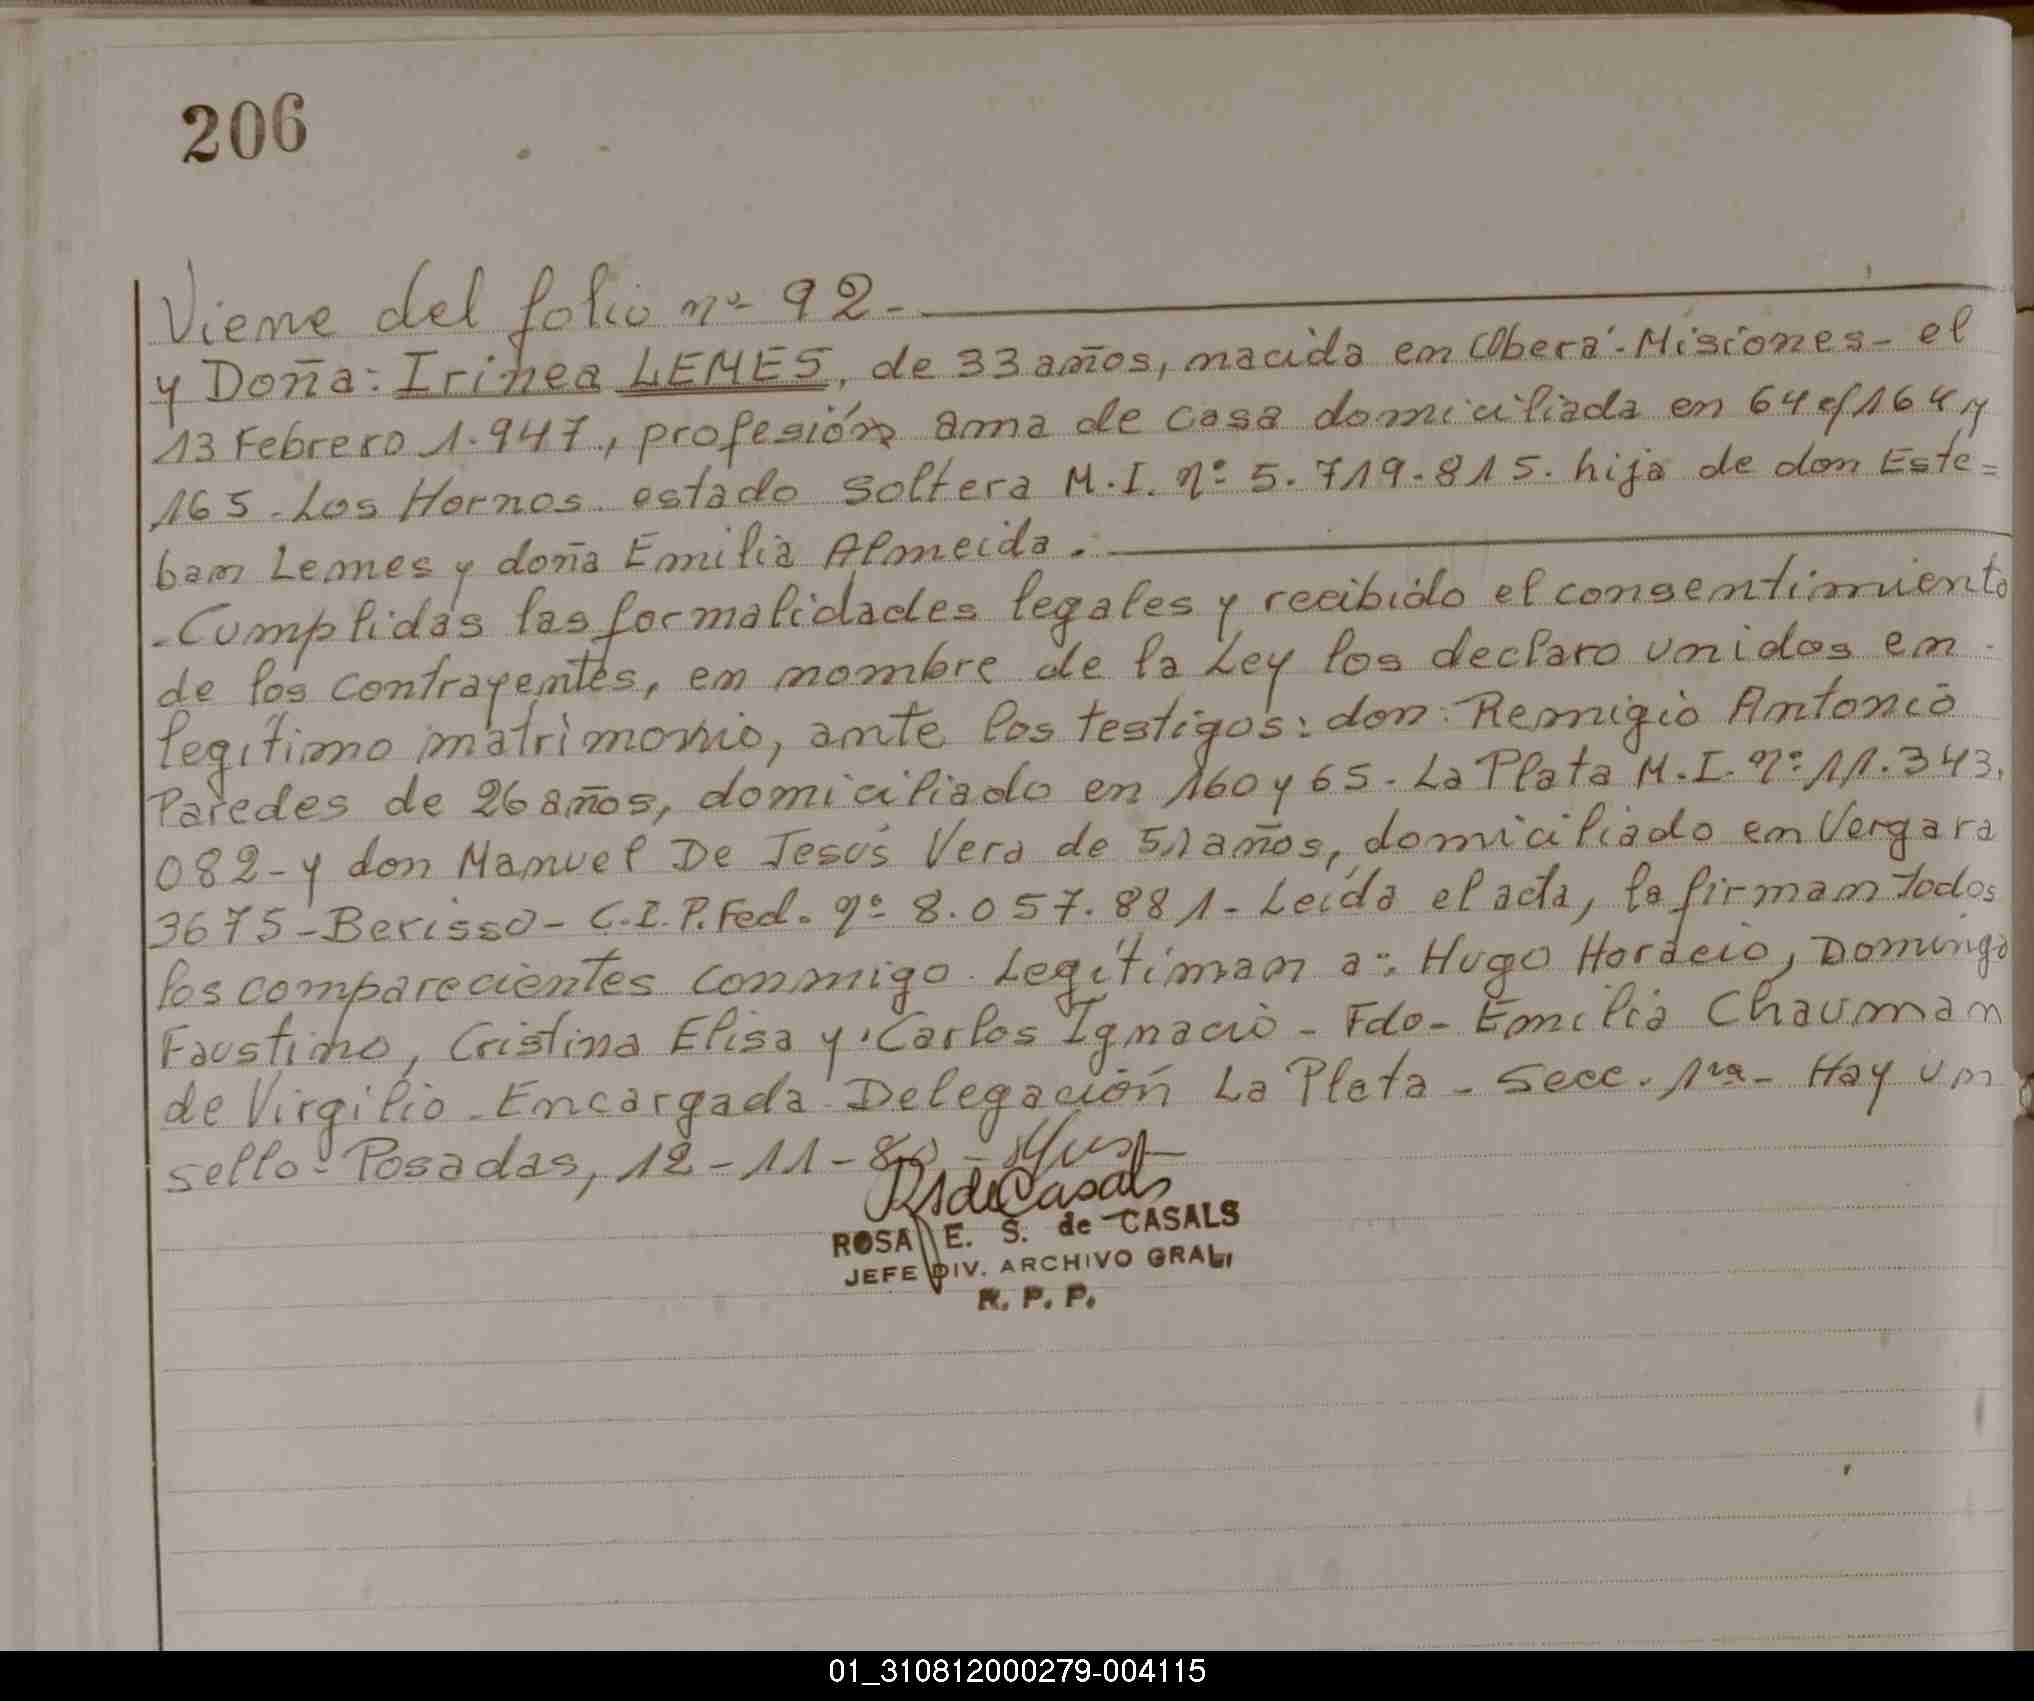 206
Viene del folio nº 92-
y Doña: Irinea LEMES, de 33 años, nacida en Oberá-Misiones- el
13 Febrero 1.947., profesión ama de casa domiciliada en 64 e/164 y
165-Los Hornos. estado soltera M.I. nº 5.719.815. hija de don Este=
ban Lemes y doña Emilia Almeida.
-Cumplidas las formalidades legales y recibido el consentimiento
de los contrayentes, en nombre de la Ley los declaro unidos en
legítimo matrimonio, ante los testigos: don: Remigio Antonio
Paredes de 26 años, domiciliado en 160 y 65-La Plata M.I. nº 11.343.
082-y don Manuel De Jesús Vera de 51 años, domiciliado en Vergara
3675-Berisso- C.I.P.Fed. nº 8.057.881- Leída el acta, la firman todos
los comparecientes conmigo. Legitiman a: Hugo Horacio, Domingo
Faustino, Cristina Elisa y Carlos Ignacio - Fdo- Emilia Chauman
de Virgilio-Encargada Delegación La Plata - Secc. 1ra- Hay un
sello-Posadas, 12-11-80-
RSdeCasals
ROSA E. S. de CASALS
JEFE DIV. ARCHIVO GRAL,
R. P. P.
01_310812000279-004115